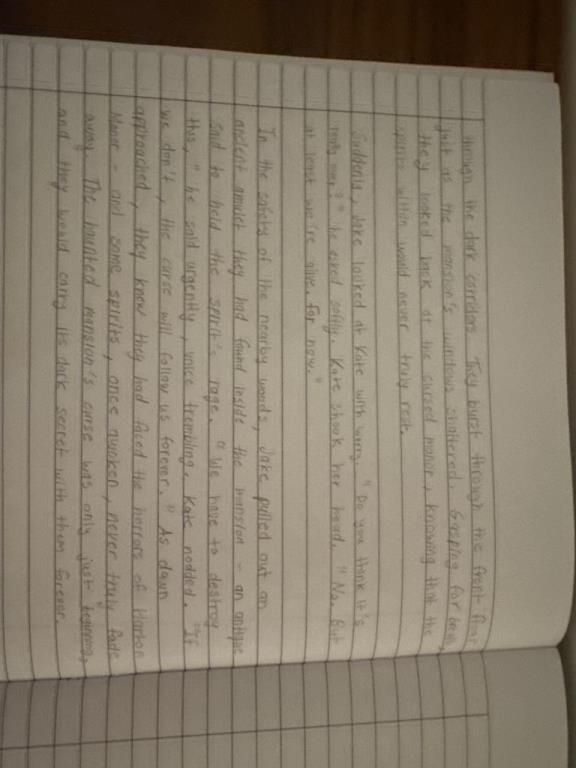 through the dark corridors. They burst through the front
just as the mansion's windows shattered. Gasping for
they looked back at the cursed manor, knowing that the
spirits within would never truly rest.
Suddenly, Jake looked at Kate with worry. "Do you think it's
really over?" he asked softly. Kate shook her head. "No. But
at least we're alive. For now."
In the safety of the nearby woods, Jake pulled out an
ancient amulet they had found inside the mansion - an antique
said to hold the spirit's rage. "We have to destroy
this," he said urgently, voice trembling. Kate nodded. "If
we don't, the curse will follow us forever." As dawn
approached, they knew they had faced the horrors of
Manor - and some spirits, once awoken, never truly fade
away. The haunted mansion's curse was only just beginning,
and they would carry its dark secret with them forever.